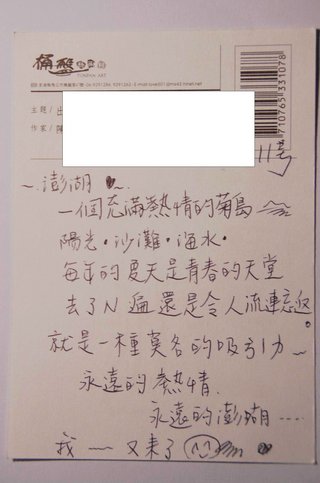 桶盤
TONPAN ART
主題/
作家/
11号
~澎湖~
一個充滿熱情的菊島
陽光·沙灘·海水·
每年的夏天是青春的天堂
去了N遍還是令人流連忘返
就是一種莫名的吸引力~
永遠的熱情
永遠的澎湖……
我~~又來了